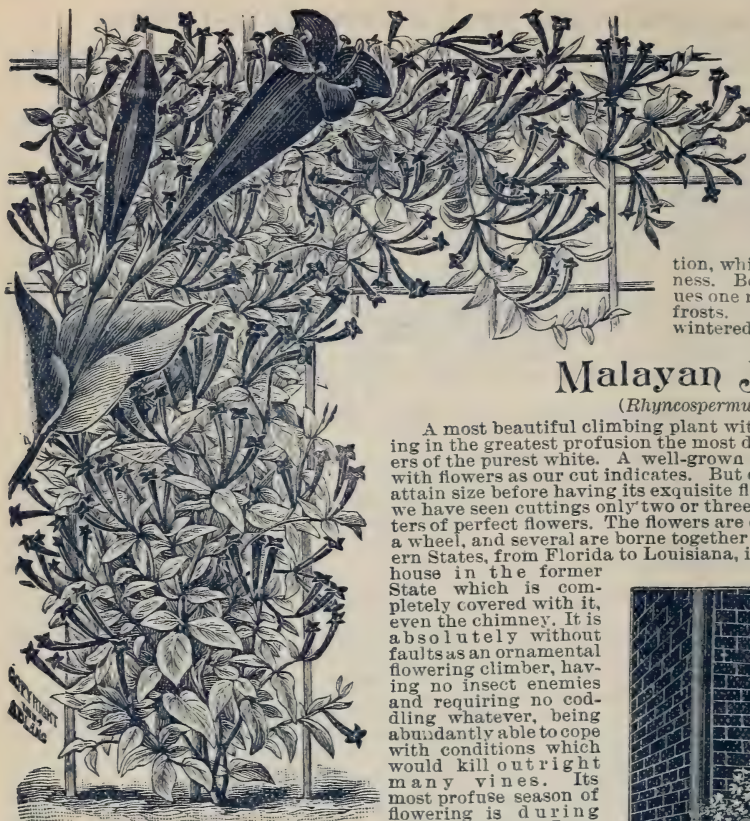 tion, whi
ness. Be
ues one
frosts.
wintered
Malayan
(Rhyncospermu
A most beautiful climbing plant wit
ing in the greatest profusion the most d
ers of the purest white. A well-grown
with flowers as our cut indicates. But
attain size before having its exquisite fl
we have seen cuttings only two or three
ters of perfect flowers. The flowers are
a wheel, and several are borne together
ern States, from Florida to Louisiana, i
house in the former
State which is com-
pletely covered with it,
even the chimney. It is
absolutely without
faults as an ornamental
flowering climber, hav-
ing no insect enemies
and requiring no cod-
dling whatever, being
abundantly able to cope
with conditions which
would kill outright
many vines. Its
most profuse season of
flowering is during
COPYRIGHT